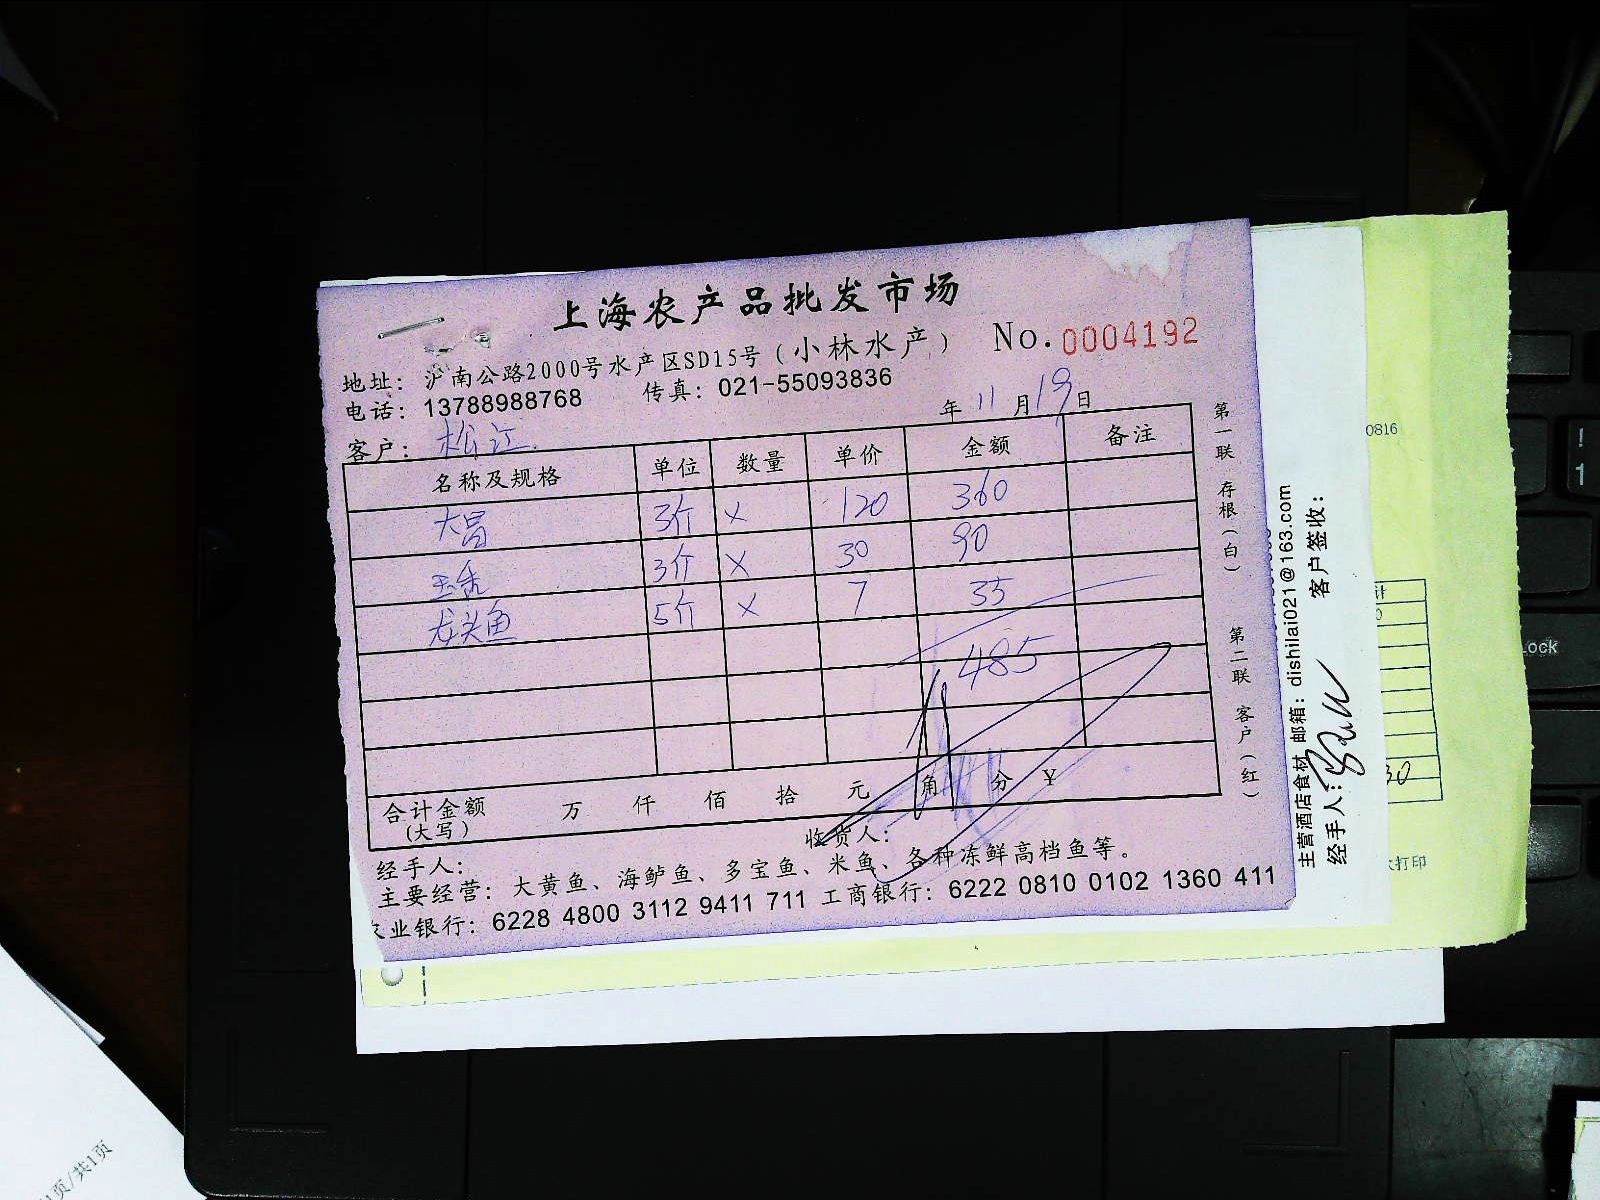 上海农产品批发市场
地址: 沪南公路2000号水产区SD15号(小林水产) No.0004192
电话: 13788988768 传真: 021-55093836
年 11 月 19 日
客户: 松江
名称及规格 单位 数量 单价 金额 备注
大昌 3斤 × 120 360
3斤 × 30 90
龙头鱼 5斤 × 7 35
485
合计金额 万 仟 佰 拾 元 角 分 ¥
(大写)
经手人: 收货人:
主要经营: 大黄鱼、海鲈鱼、多宝鱼、米鱼、各种冻鲜高档鱼等。
农业银行: 6228 4800 3112 9411 711 工商银行: 6222 0810 0102 1360 411
第一联 存根(白)
第二联 客户(红)
主营酒店食材 邮箱: dishilai021@163.com
经手人: 客户签收:
0816
计
30
打印
1页/共1页
!
1
Lock